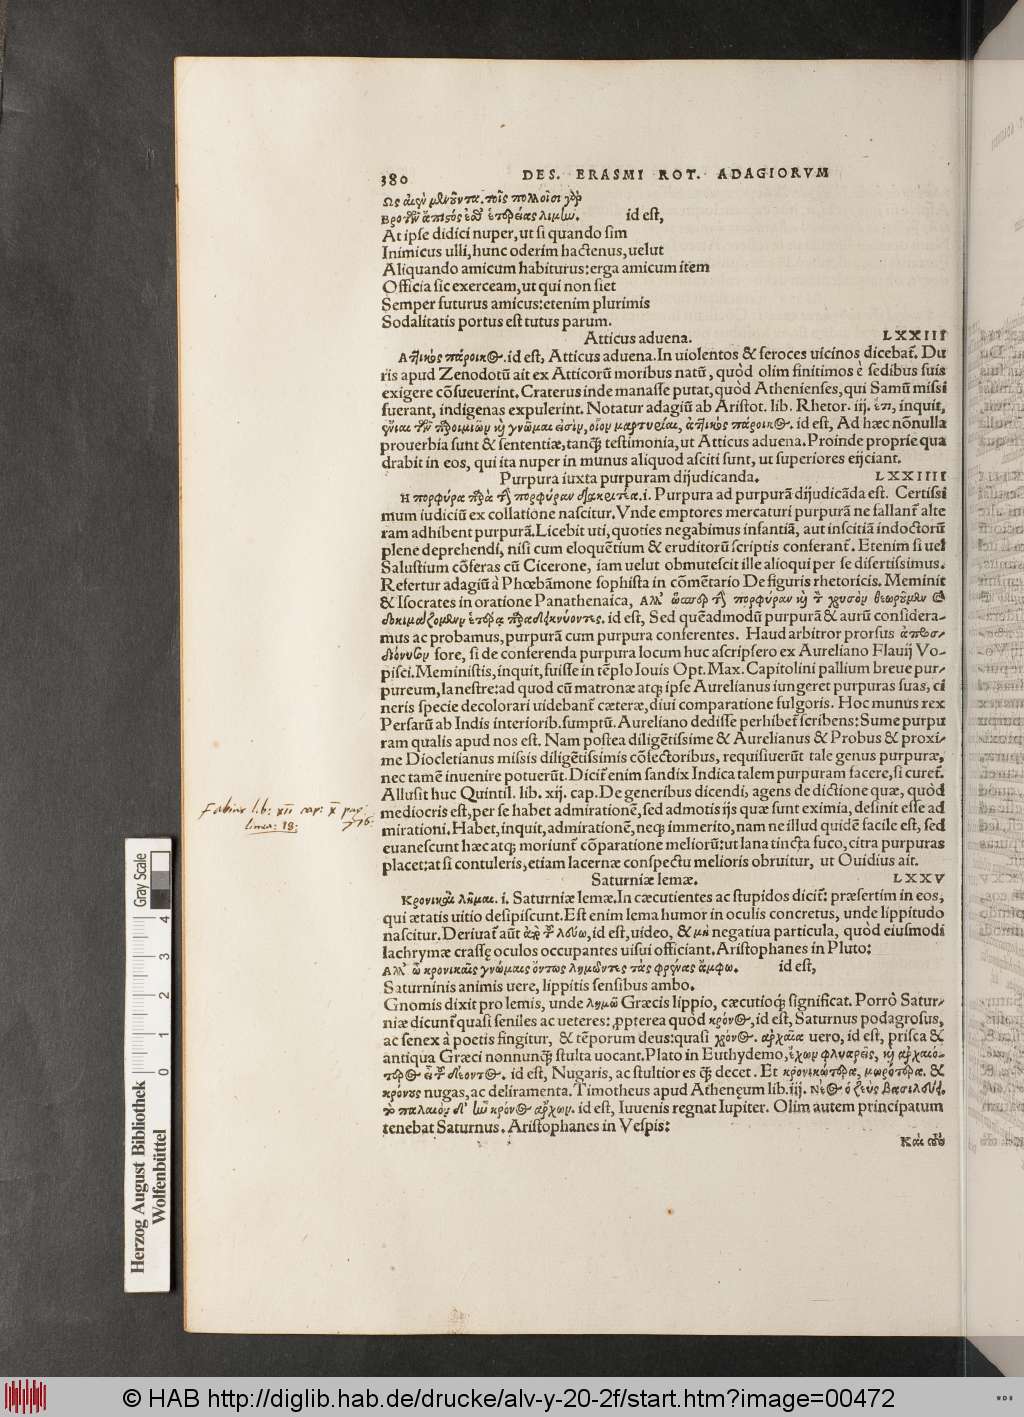 380 DES. ERASMI ROT. ADAGIORVM
Ως αἰὲν μενοῦντα. τοῖς πολλοῖσι γὰρ
Βροτῶν ἄπιστός ἐσθ' ἑταιρείας λιμήν. id est,
At ipse didici nuper, ut si quando sim
Inimicus ulli, hunc oderim hactenus, uelut
Aliquando amicum habiturus: erga amicum item
Officia sic exerceam, ut qui non siet
Semper futurus amicus: etenim plurimis
Sodalitatis portus est tutus parum.
Atticus aduena. LXXIII
Ατικὸς πάροικος. id est, Atticus aduena. In uiolentos & feroces uicinos dicebat̃. Du
ris apud Zenodotũ ait ex Atticorũ moribus natũ, quòd olim finitimos è sedibus suis
exigere cõsueuerint. Craterus inde manasse putat, quòd Athenienses, qui Samũ missi
fuerant, indigenas expulerint. Notatur adagiũ ab Aristot. lib. Rhetor. iij. ἔτι, inquit,
ἔνιαι τῶν παροιμιῶν καὶ γνῶμαι εἰσὶν, οἷον μαρτυρίαι, ἀτικὸς πάροικος. id est, Ad hæc nõnulla
prouerbia sunt & sententiæ, tanq̃ testimonia, ut Atticus aduena. Proinde proprie qua
drabit in eos, qui ita nuper in munus aliquod asciti sunt, ut superiores eijciant.
Purpura iuxta purpuram dijudicanda. LXXIIII
Η πορφύρα παρὰ τὴν πορφύραν διακριτέα. i. Purpura ad purpurã dijudicãda est. Certissi
mum iudiciũ ex collatione nascitur. Vnde emptores mercaturi purpurã ne fallant̃ alte
ram adhibent purpurã. Licebit uti, quoties negabimus infantiã, aut inscitiã indoctorũ
plene deprehendi, nisi cum eloquẽtium & eruditorũ scriptis conferant̃. Etenim si uel
Salustium cõferas cũ Cicerone, iam uelut obmutescit ille alioqui per se disertissimus.
Refertur adagiũ à Phœbãmone sophista in cõmẽtario De figuris rhetoricis. Meminit
& Isocrates in oratione Panathenaica, Αλλ' ὥσπερ τὴν πορφύραν καὶ τὸν χρυσὸν θεωροῦμεν καὶ
δοκιμάζομεν ἕτερα παραδεικνύοντες. id est, Sed quẽadmodũ purpurã & aurũ considera-
mus ac probamus, purpurã cum purpura conferentes. Haud arbitror prorsus ἀπροσ-
διόνυσον fore, si de conferenda purpura locum huc ascripsero ex Aureliano Flauij Vo-
pisci. Meministis, inquit, fuisse in tẽplo Iouis Opt. Max. Capitolini pallium breue pur-
pureum, lanestre: ad quod cũ matronæ atq; ipse Aurelianus iungeret purpuras suas, ci
neris specie decolorari uidebant̃ cæteræ, diui comparatione fulgoris. Hoc munus rex
Persarũ ab Indis interiorib. sumptũ. Aureliano dedisse perhibet̃ scribens: Sume purpu
ram qualis apud nos est. Nam postea diligẽtissime & Aurelianus & Probus & proxi-
me Diocletianus missis diligẽtissimis cõfectoribus, requisiuerũt tale genus purpuræ,
nec tamẽ inuenire potuerũt. Dicit̃ enim sandix Indica talem purpuram facere, si curet̃.
Allusit huc Quintil. lib. xij. cap. De generibus dicendi, agens de dictione quæ, quòd
mediocris est, per se habet admirationẽ, sed admotis ijs quæ sunt eximia, desinit esse ad
mirationi. Habet, inquit, admirationẽ, neq; immerito, nam ne illud quidẽ facile est, sed
euanescunt hæc atq; moriunt̃ cõparatione meliorũ: ut lana tincta fuco, citra purpuras
placet: at si contuleris, etiam lacernæ conspectu melioris obruitur, ut Ouidius ait.
Fabius lib: xii cap: x pag:
716.
linea: 18:
Saturniæ lemæ. LXXV
Κρονικαὶ λῆμαι. i. Saturniæ lemæ. In cæcutientes ac stupidos dicit̃: præsertim in eos,
qui ætatis uitio desipiscunt. Est enim lema humor in oculis concretus, unde lippitudo
nascitur. Deriuat̃ aũt ἀπὸ τοῦ λάω, id est, uideo, & μὴ negatiua particula, quòd eiusmodi
lachrymæ crassę oculos occupantes uisui officiant. Aristophanes in Pluto:
Αλλ' ὦ κρονικαῖς γνώμαις ὄντως λημῶντες τὰς φρένας ἄμφω. id est,
Saturninis animis uere, lippitis sensibus ambo.
Gnomis dixit pro lemis, unde λημῶ Græcis lippio, cæcutioq; significat. Porrò Satur-
niæ dicunt̃ quasi seniles ac ueteres: ꝓpterea quòd κρόνος, id est, Saturnus podagrosus,
ac senex à poetis fingitur, & tẽporum deus: quasi χρόνος. ἀρχαῖα uero, id est, prisca &
antiqua Græci nonnunq̃ stulta uocant. Plato in Euthydemo, ἔχων φλυαρεῖς, καὶ ἀρχαιό-
τερος εἶ τοῦ δέοντος. id est, Nugaris, ac stultior es q̃ decet. Et κρονικώτερα, μωρότερα. &
κρόνους nugas, ac deliramenta. Timotheus apud Athenęum lib. iij. Νέος ὁ ζεὺς βασιλεύει.
τὸ παλαιὸν δ' ἦν κρόνος ἄρχων. id est, Iuuenis regnat Iupiter. Olim autem principatum
tenebat Saturnus. Aristophanes in Vespis:
Καὶ σὺ
Herzog August Bibliothek
Wolfenbüttel
Gray Scale
0 1 2 3 4
© HAB http://diglib.hab.de/drucke/alv-y-20-2f/start.htm?image=00472